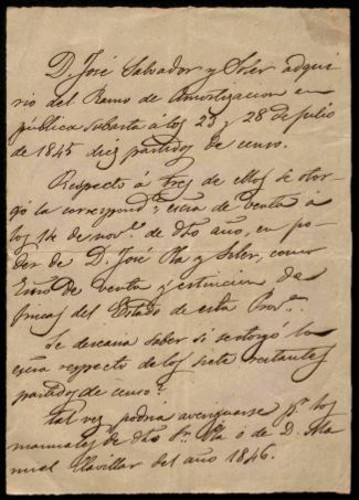 D. José Salvador y Soler adqui
rio del Ramo de Amortizacion en
pública subasta á los 23 y 28 de julio
de 1845 diez partidos de censo.
Respecto á tres de ellos se otor-
gó la correspond.e escra de venta á
los 14 de nov.e de dho año, en po-
der de D. José Pla y Soler, como
Esno de venta y estincion de
fincas del Estado de esta Prov.a
Se desearia saber si se otorgó la
escra respecto de los siete restantes
partidos de censo?
Tal vez podria averiguarse p.r los
manuales de dho Sr. Pla ó de D. Ma
nuel Clavillar del año 1846.